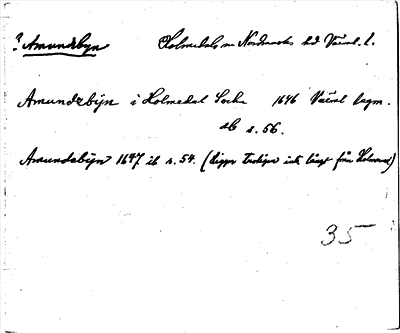 ? Amundebyn Holmedals sn Nordmarks hd Värml. l.
Amundebÿn i Holmedal Sochn 1646 Värml
ib s. 56.
Amundebÿn 1647 ib s. 54. (ligger troligen inte långt från Holmerud)
35